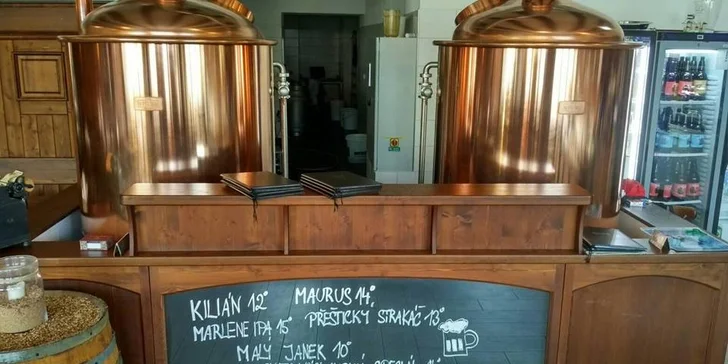 KILIÁN 12°
MAURUS 14°
MARLENE IPA 15°
PŘEŠTICKÝ STRAKÁČ 13°
MALÝ JANEK 10°